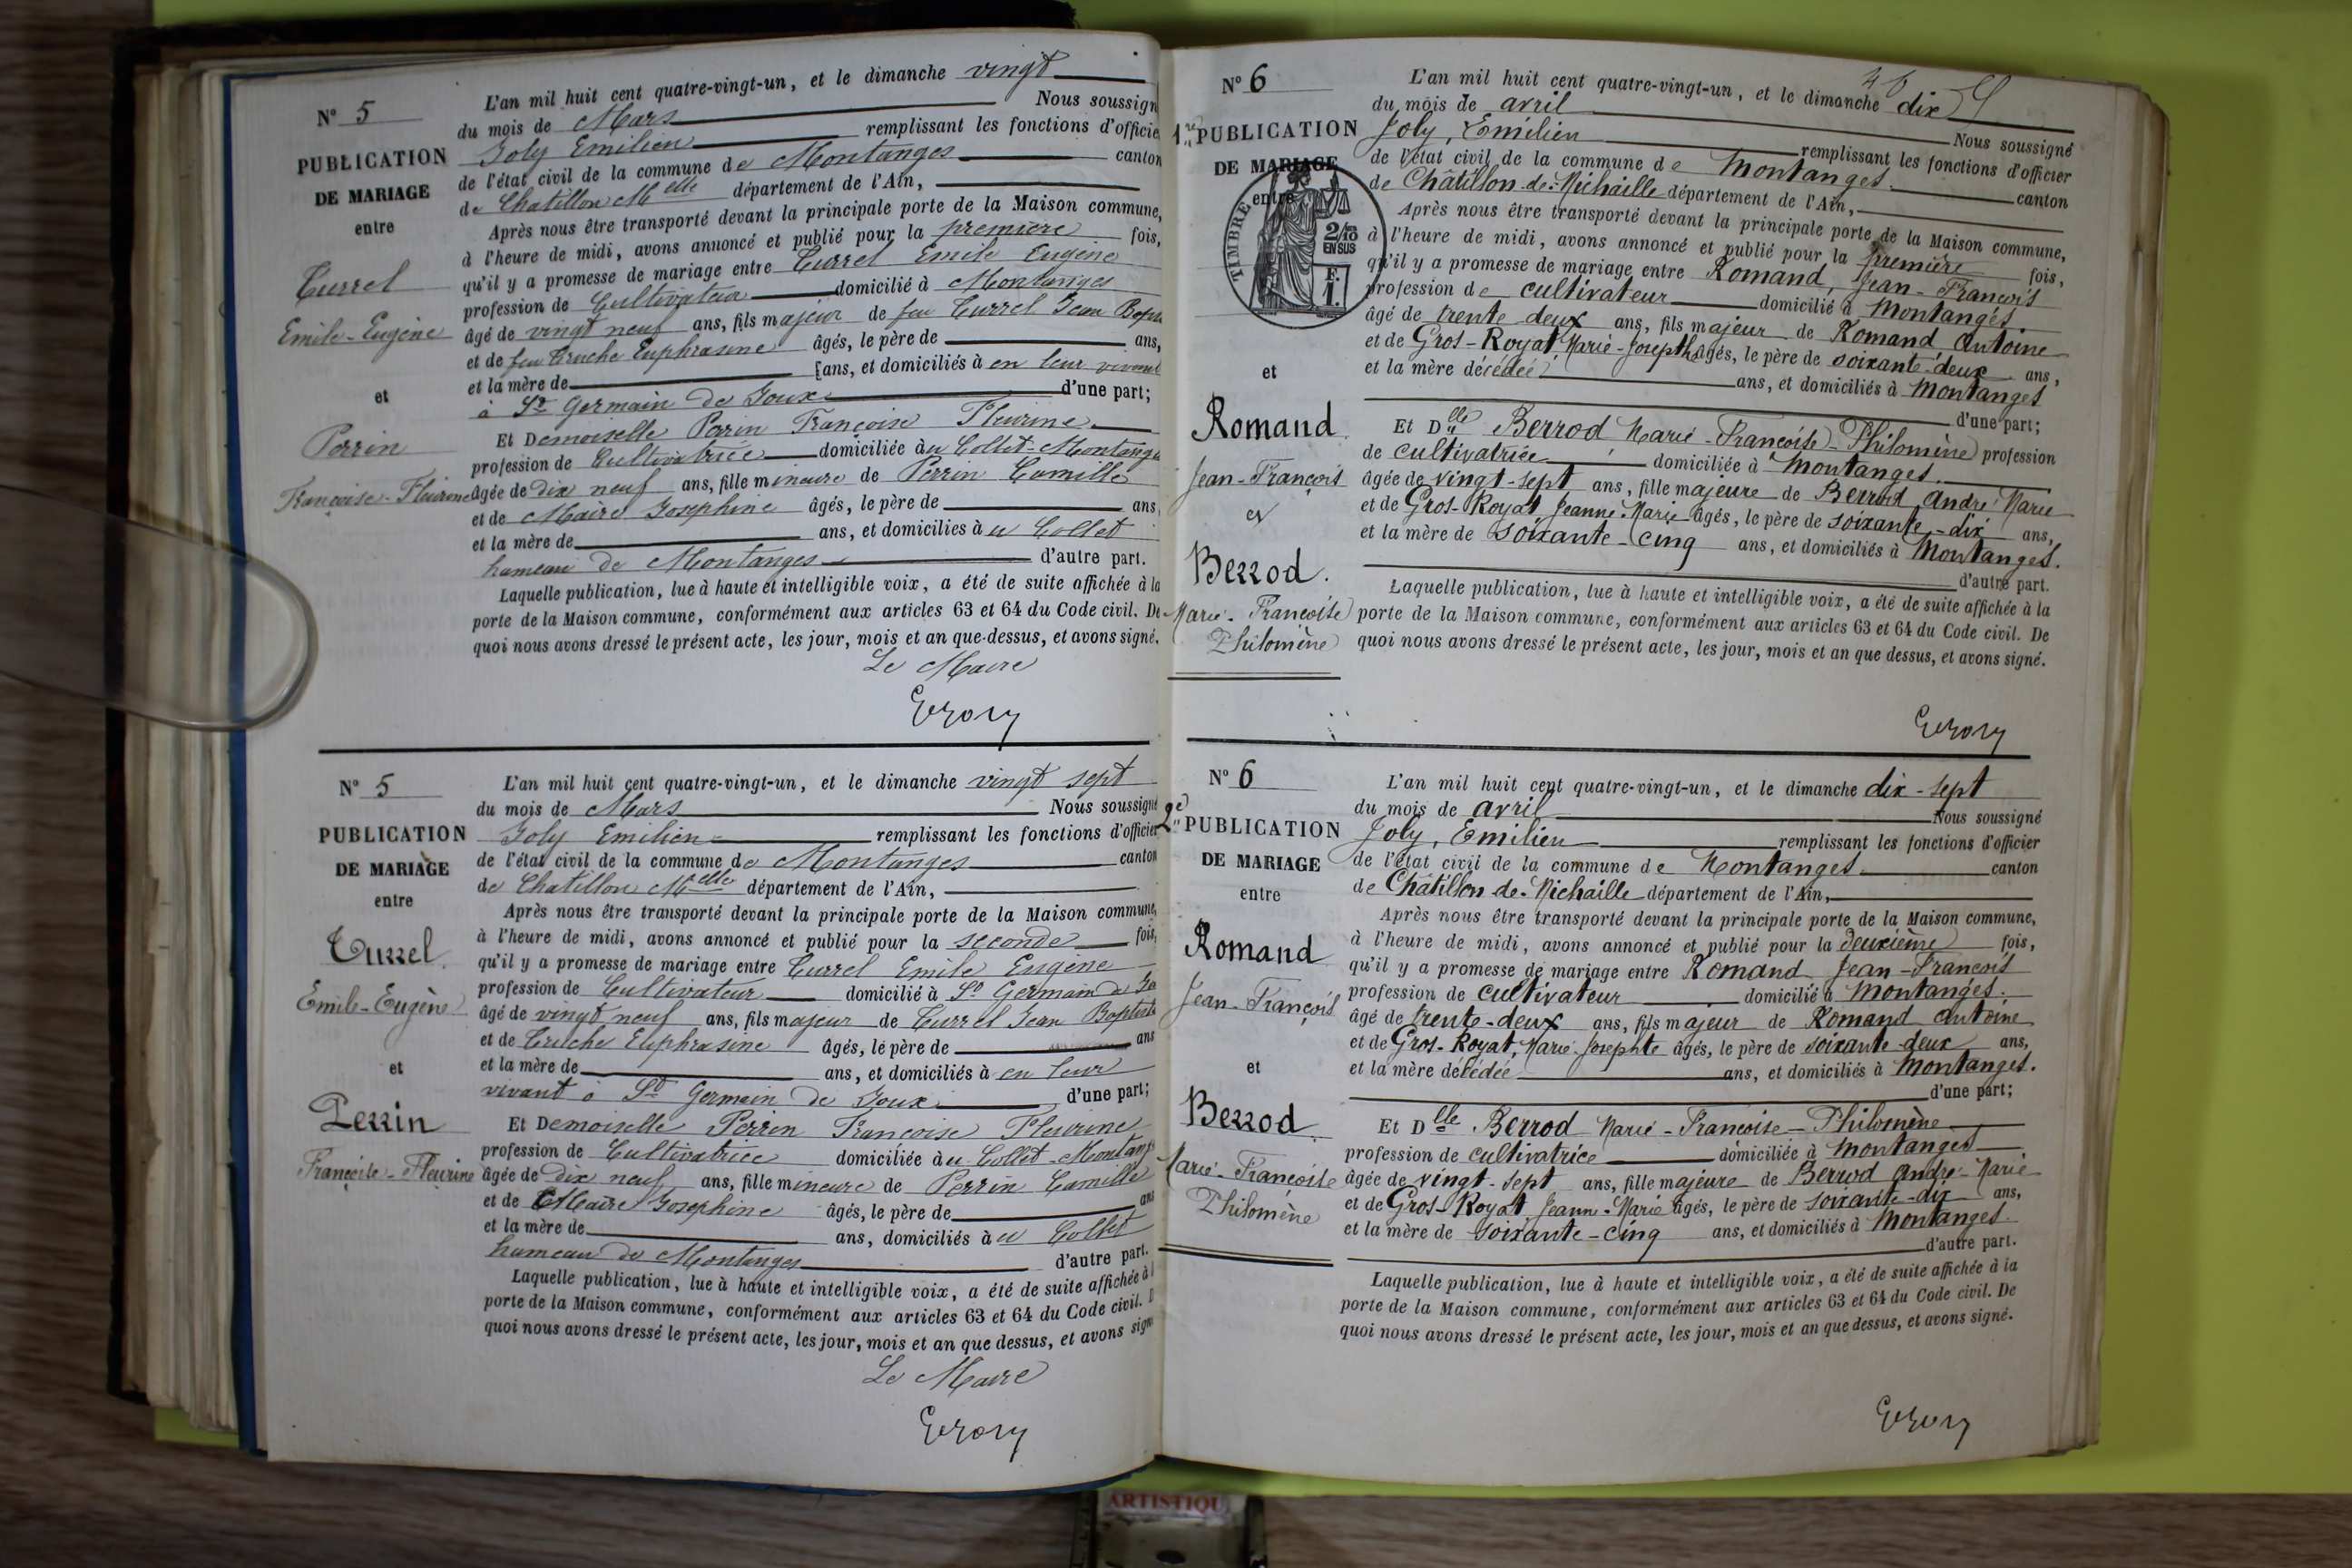 N° 5
PUBLICATION
DE MARIAGE
entre
Turrel
Emile-Eugène
et
Perrin
Françoise-Fleurine
L'an mil huit cent quatre-vingt-un, et le dimanche vingt
du mois de Mars Nous soussign
Joly Emilien remplissant les fonctions d'officie
de l'état civil de la commune de Montanges canton
de Chatillon Melle département de l'Ain,
Après nous être transporté devant la principale porte de la Maison commune,
à l'heure de midi, avons annoncé et publié pour la première fois,
qu'il y a promesse de mariage entre Turrel Emile Eugène
profession de Cultivateur domicilié à Montanges
âgé de vingt neuf ans, fils majeur de feu Turrel Jean Bapti
et de feu Truche Euphrasine âgés, le père de ans,
et la mère de ans, et domiciliés à en leur vivant
à St Germain de Joux d'une part;
Et Demoiselle Perrin Françoise Fleurine
profession de Cultivatrice domiciliée au Collet-Montange
âgée de dix neuf ans, fille mineure de Perrin Camille
et de Maire Josephine âgés, le père de ans,
et la mère de ans, et domiciliés à u Collet
hameau de Montanges d'autre part.
Laquelle publication, lue à haute et intelligible voix, a été de suite affichée à la
porte de la Maison commune, conformément aux articles 63 et 64 du Code civil. De
quoi nous avons dressé le présent acte, les jour, mois et an que-dessus, et avons signé.
Le Maire
N° 5
PUBLICATION
DE MARIAGE
entre
Turrel
Emile-Eugène
et
Perrin
Françoise-Fleurine
L'an mil huit cent quatre-vingt-un, et le dimanche vingt sept
du mois de Mars Nous soussigné
Joly Emilien remplissant les fonctions d'officier
de l'état civil de la commune de Montanges canton
de Chatillon Melle département de l'Ain,
Après nous être transporté devant la principale porte de la Maison commune,
à l'heure de midi, avons annoncé et publié pour la seconde fois,
qu'il y a promesse de mariage entre Turrel Emile Eugène
profession de Cultivateur domicilié à St Germain de Jo
âgé de vingt neuf ans, fils majeur de Turrel Jean Baptiste
et de Truche Euphrasine âgés, le père de ans
et la mère de ans, et domiciliés à en leur
vivant à St Germain de Joux d'une part;
Et Demoiselle Perrin Françoise Fleurine
profession de Cultivatrice domiciliée à u Collet-Montang
âgée de dix neuf ans, fille mineure de Perrin Camille
et de Maire Josephine âgés, le père de ans
et la mère de ans, domiciliés à u Collet
hameau de Montanges d'autre part.
Laquelle publication, lue à haute et intelligible voix, a été de suite affichée à l
porte de la Maison commune, conformément aux articles 63 et 64 du Code civil. D
quoi nous avons dressé le présent acte, les jour, mois et an que dessus, et avons sign
Le Maire
N° 6
1re PUBLICATION
DE MARIAGE
entre
TIMBRE
2/10
EN SUS
F.
1.
et
Romand
Jean-François
et
Berrod.
Marie-Françoise
Philomène
L'an mil huit cent quatre-vingt-un, et le dimanche dix
du mois de avril Nous soussigné
Joly, Emilien remplissant les fonctions d'officier
de l'état civil de la commune de Montanges canton
de Châtillon-de-Michaille département de l'Ain,
Après nous être transporté devant la principale porte de la Maison commune,
à l'heure de midi, avons annoncé et publié pour la première fois,
qu'il y a promesse de mariage entre Romand, Jean-François
profession de cultivateur domicilié à Montanges
âgé de trente deux ans, fils majeur de Romand Antoine
et de Gros-Royat Marie-Josephte âgés, le père de soixante-deux ans,
et la mère décédée, ans, et domiciliés à Montanges
d'une part;
Et Dlle Berrod Marie-Françoise-Philomène profession
de cultivatrice domiciliée à Montanges.
âgée de vingt-sept ans, fille majeure de Berrod André Marie
et de Gros-Royat Jeanne-Marie âgés, le père de soixante-dix ans,
et la mère de soixante-cinq ans, et domiciliés à Montanges.
d'autre part.
Laquelle publication, lue à haute et intelligible voix, a été de suite affichée à la
porte de la Maison commune, conformément aux articles 63 et 64 du Code civil. De
quoi nous avons dressé le présent acte, les jour, mois et an que dessus, et avons signé.
N° 6
2e PUBLICATION
DE MARIAGE
entre
Romand
Jean-François
et
Berrod
Marie-Françoise
Philomène
L'an mil huit cent quatre-vingt-un, et le dimanche dix-sept
du mois de avril Nous soussigné
Joly, Emilien remplissant les fonctions d'officier
de l'état civil de la commune de Montanges canton
de Châtillon-de-Michaille département de l'Ain,
Après nous être transporté devant la principale porte de la Maison commune,
à l'heure de midi, avons annoncé et publié pour la deuxième fois,
qu'il y a promesse de mariage entre Romand Jean-François
profession de cultivateur domicilié à Montanges.
âgé de trente-deux ans, fils majeur de Romand Antoine
et de Gros-Royat, Marie Josephte âgés, le père de soixante-deux ans,
et la mère décédée ans, et domiciliés à Montanges.
d'une part;
Et Dlle Berrod Marie-Françoise-Philomène
profession de cultivatrice domiciliée à Montanges
âgée de vingt-sept ans, fille majeure de Berrod André-Marie
et de Gros-Royat Jeanne-Marie âgés, le père de soixante-dix ans,
et la mère de soixante-cinq ans, et domiciliés à Montanges.
d'autre part.
Laquelle publication, lue à haute et intelligible voix, a été de suite affichée à la
porte de la Maison commune, conformément aux articles 63 et 64 du Code civil. De
quoi nous avons dressé le présent acte, les jour, mois et an que dessus, et avons signé.
ARTISTIQU